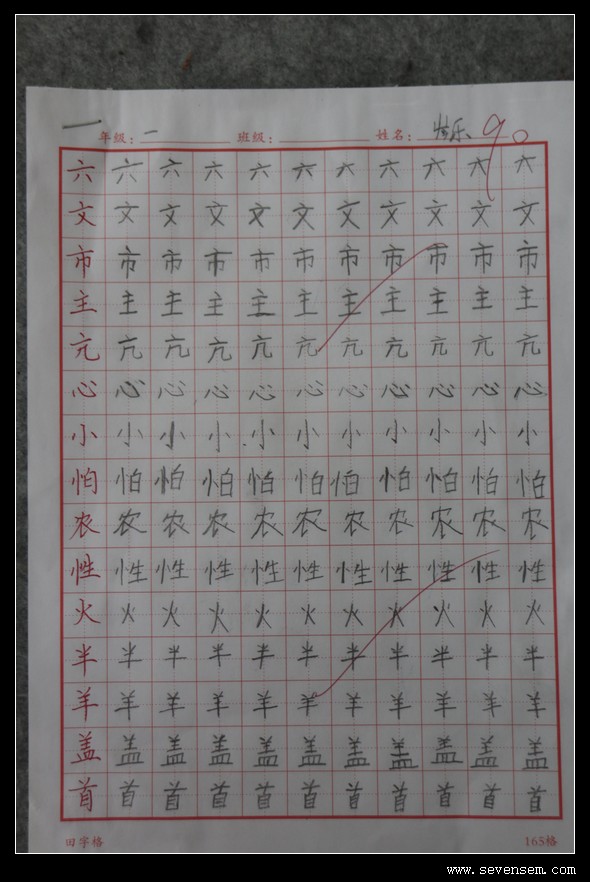 一 年级: 一 班级: 姓名: 快乐 90
六 六 六 六 六 六 六 六 六 六 六
文 文 文 文 文 文 文 文 文 文 文
市 市 市 市 市 市 市 市 市 市 市
主 主 主 主 主 主 主 主 主 主 主
亢 亢 亢 亢 亢 亢 亢 亢 亢 亢 亢
心 心 心 心 心 心 心 心 心 心 心
小 小 小 小 小 小 小 小 小 小 小
怕 怕 怕 怕 怕 怕 怕 怕 怕 怕 怕
农 农 农 农 农 农 农 农 农 农 农
性 性 性 性 性 性 性 性 性 性 性
火 火 火 火 火 火 火 火 火 火 火
半 半 半 半 半 半 半 半 半 半 半
羊 羊 羊 羊 羊 羊 羊 羊 羊 羊 羊
盖 盖 盖 盖 盖 盖 盖 盖 盖 盖 盖
首 首 首 首 首 首 首 首 首 首 首
田字格 165格
www.sevensem.com